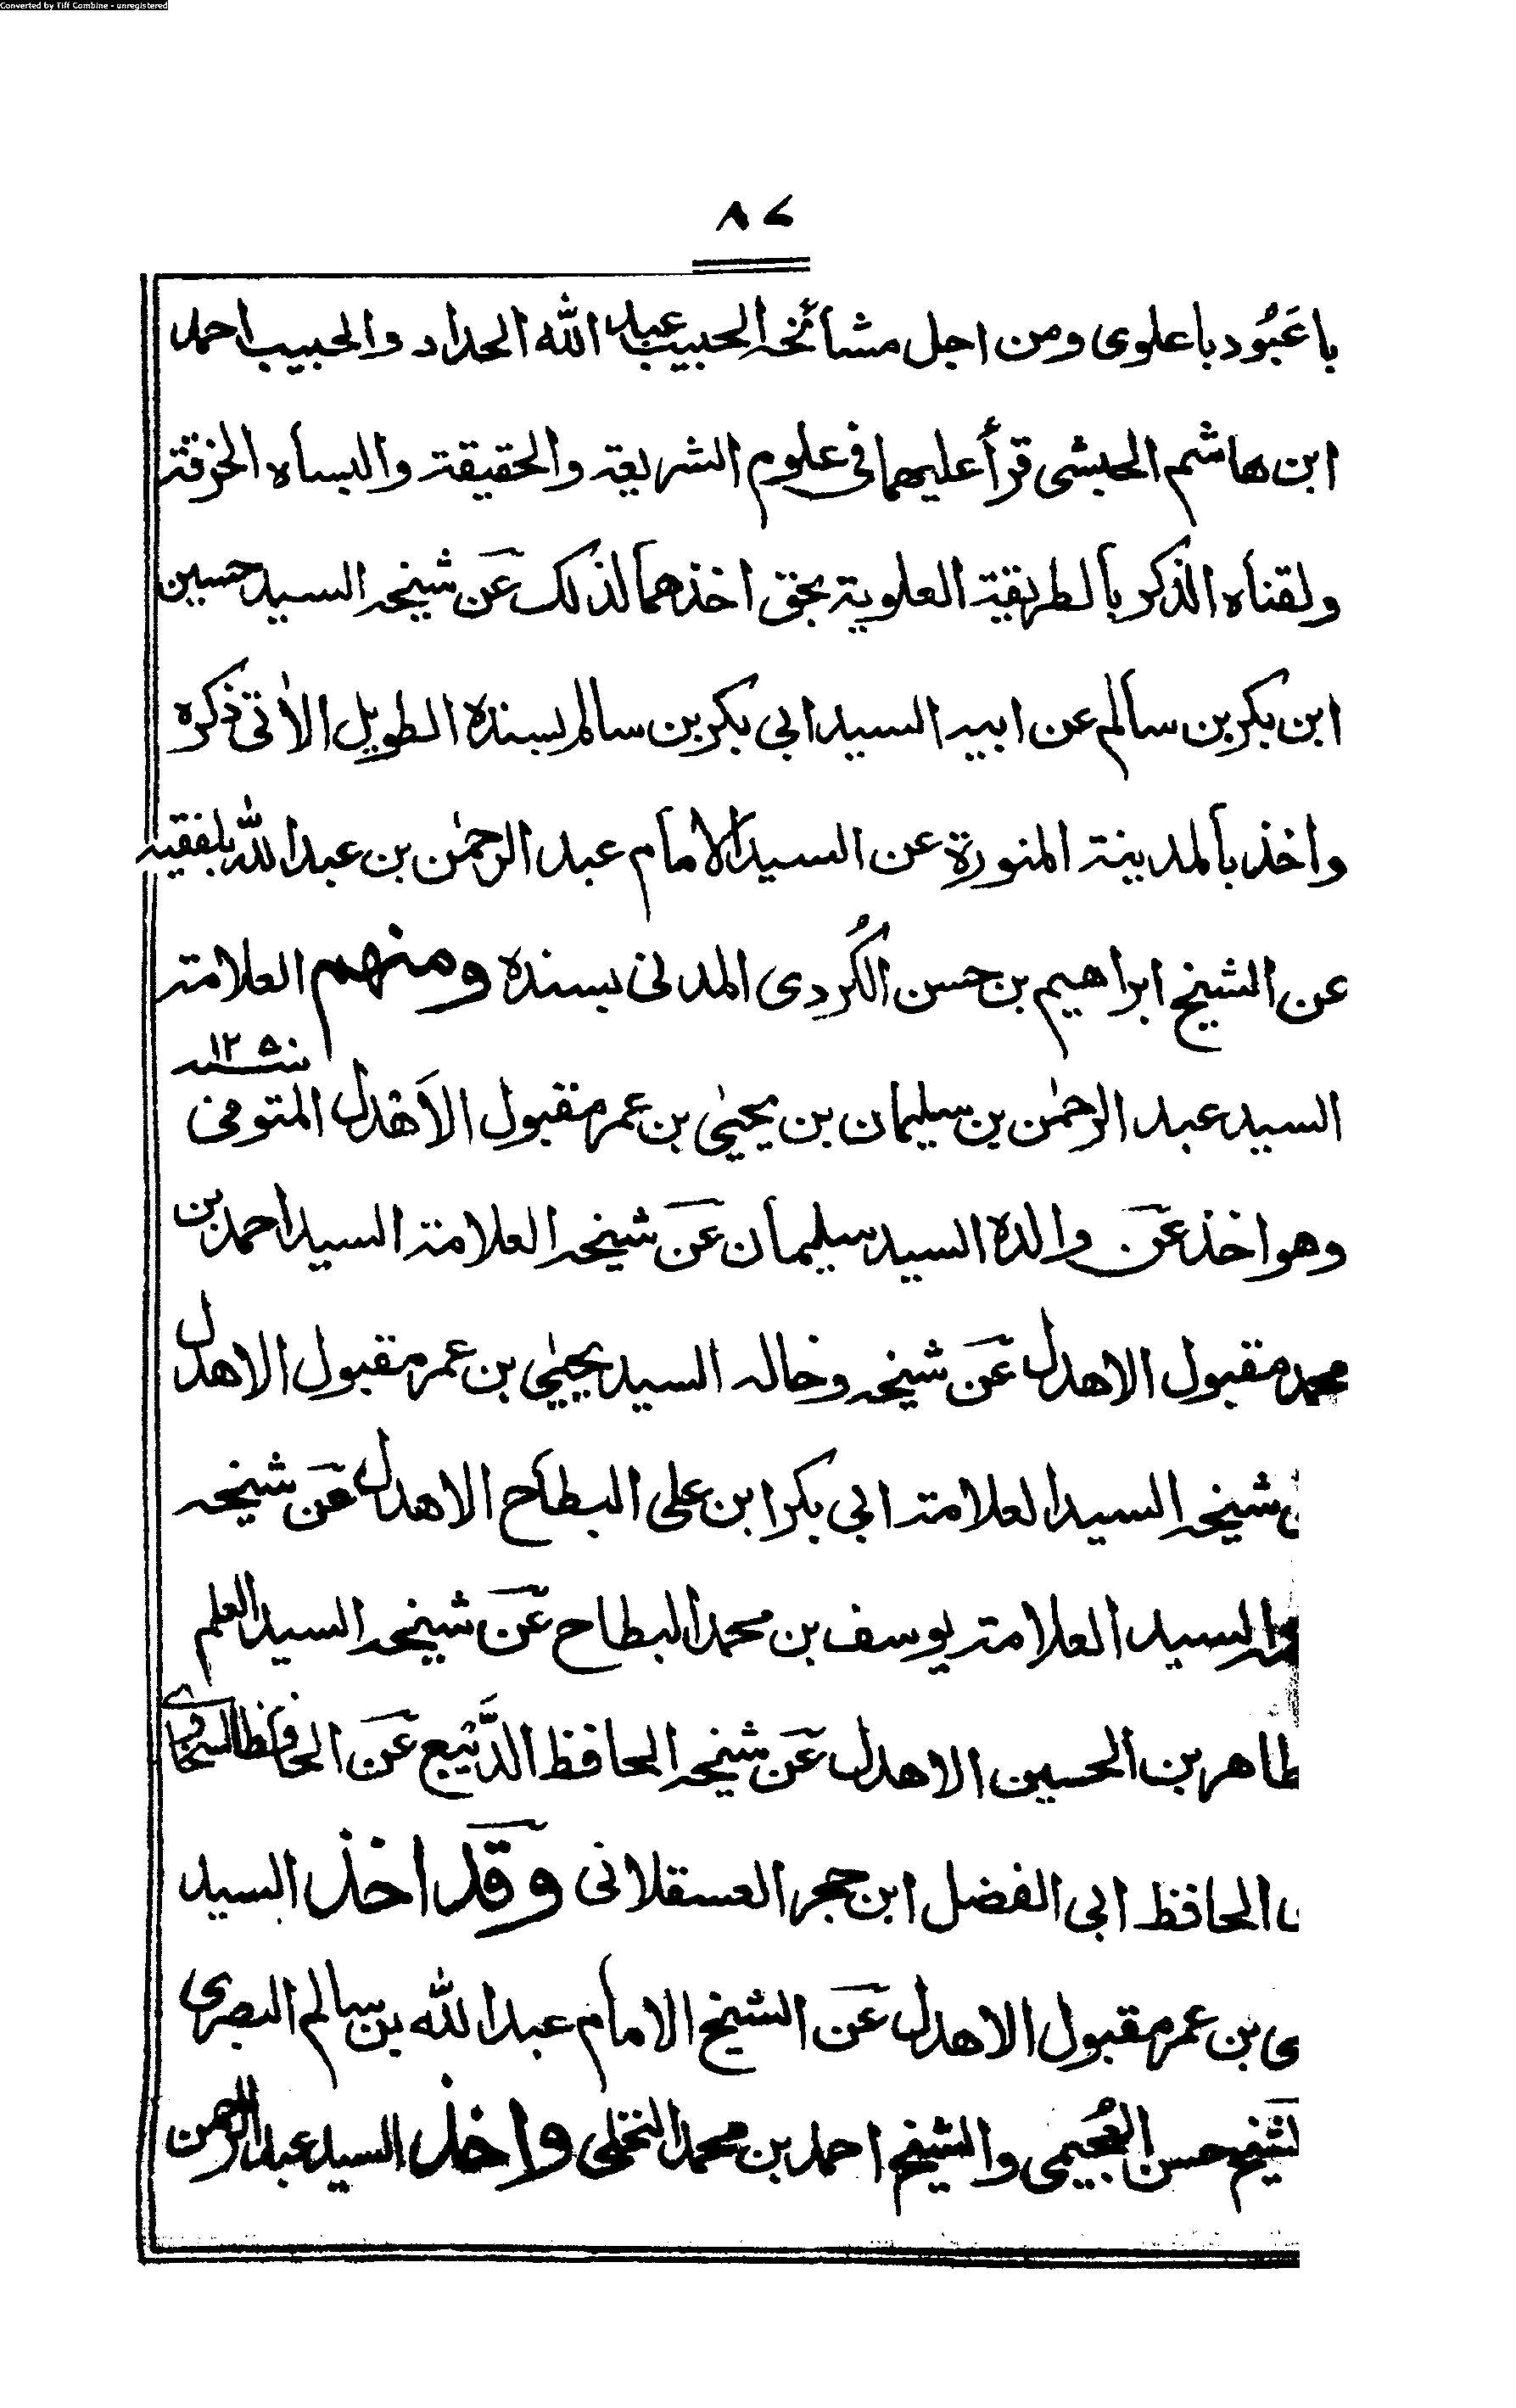 Converted by Tiff Combine - unregistered
٨٤
با عَبُود باعلوى ومن اجل مشائخه الحبيب عبد الله الحداد والحبيب احمد
ابن هاشم الحبشى قرأ عليهما فى علوم الشريعة والحقيقة والبساه الخرقة
ولقناه الذكر بالطريقة العلوية بحق اخذهما لذلك عَن شيخه السيد حسين
ابن بكر بن سالم عن ابيه السيد ابي بكر بن سالم بسنده الطويل الاٰتى ذكره
واخذ بالمدينة المنورة عن السيد الامام عبد الرحمٰن بن عبد الله بلفقيه
عن الشيخ ابراهيم بن حسن الكُردى المدنى بسنده ومنهم العلامة
السيد عبد الرحمٰن بن سليمان بن يحيٰى بن عمر مقبول الاَهْدل المتوفى سنه ١٢٥٠
وهو اخذ عَن والده السيد سليمان عَن شيخه العلامة السيد احمد بن
محمد مقبول الاهدل عَن شيخه وخاله السيد يحيٰى بن عمر مقبول الاهدل
شيخه السيد العلامة ابي بكر ابن على البطاح الاهدل عَن شيخه
والسيد العلامة يوسف بن محمد البطاح عَن شيخه السيد العلم
طاهر بن الحسين الاهدل عَن شيخه الحافظ الدَّيْبع عَن الحافظ السخاوى
الحافظ ابي الفضل ابن حجر العسقلانى وقد اخذ السيد
ى بن عمر مقبول الاهدل عَن الشيخ الامام عبد الله بن سالم البصرى
لشيخ حسن العُجيمى والشيخ احمد بن محمد النخلى واخذ السيد عبد الرحمن